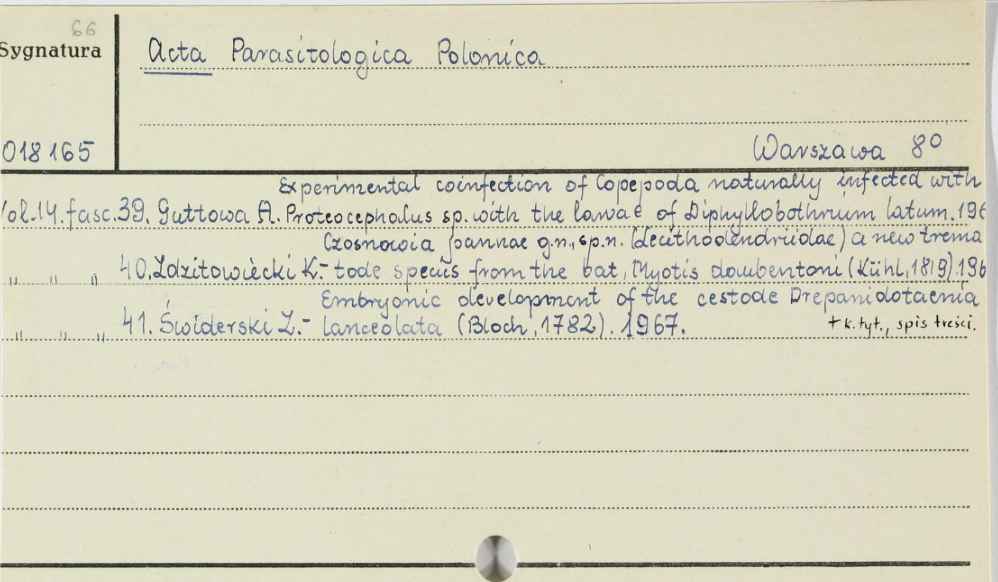 66
Sygnatura
Acta Parasitologica Polonica
018165
Warszawa 8⁰
Experimental coinfection of Copepoda naturally infected with
Vol.14. fasc. 39. Guttowa A. Proteocephalus sp. with the larvae of Diphyllobothrium latum. 196
Czosnowia joannae g.n., sp.n. (Lecithodendriidae) a new trema
„ „ „ 40. Zdzitowiecki K.- tode species from the bat, Myotis daubentoni (Kühl, 1819). 196
Embryonic development of the cestode Drepanidotaenia
„ „ „ 41. Świderski Z.- lanceolata (Bloch, 1782). 1967.
+ k. tyt., spis treści.